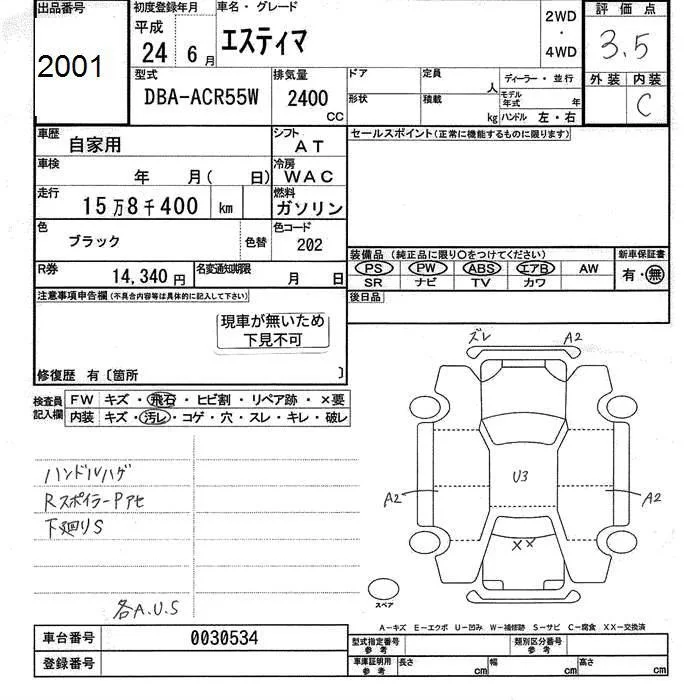 出品番号
2001
初度登録年月
平成
24 6月
車名・グレード
エスティマ
2WD
・
4WD
評価点
3.5
外装 内装
C
型式
DBA-ACR55W
排気量
2400
CC
ドア 定員 人
形状 積載 kg
ディーラー・並行
モデル年式 年
ハンドル 左・右
車歴 自家用
シフト AT
車検 年 月( 日)
冷房 WAC
走行 15万8千400 km
燃料 ガソリン
色 ブラック 色替
色コード 202
R券 14,340円
名変通知期限 月 日
セールスポイント(正常に機能するものに限ります)
装備品(純正品に限り○をつけてください)
PS PW ABS エアB AW
SR ナビ TV カワ
新車保証書
有・無
後日品
注意事項申告欄(不具合内容等は具体的に記入して下さい)
現車が無いため
下見不可
修復歴 有〔箇所 〕
検査員記入欄
FW キズ・飛石・ヒビ割・リペア跡・×要
内装 キズ・汚レ・コゲ・穴・スレ・キレ・破レ
ハンドルハゲ
RスポイラーPアセ
下廻りS
各A.U.S
ズレ A2
U3
A2 A2
XX
スペア
A-キズ E-エクボ U-凹み W-補修跡 S-サビ C-腐食 XX-交換済
車台番号 0030534
登録番号
型式指定番号 参考
類別区分番号 参考
車庫証明用 参考
長さ cm 幅 cm 高さ cm